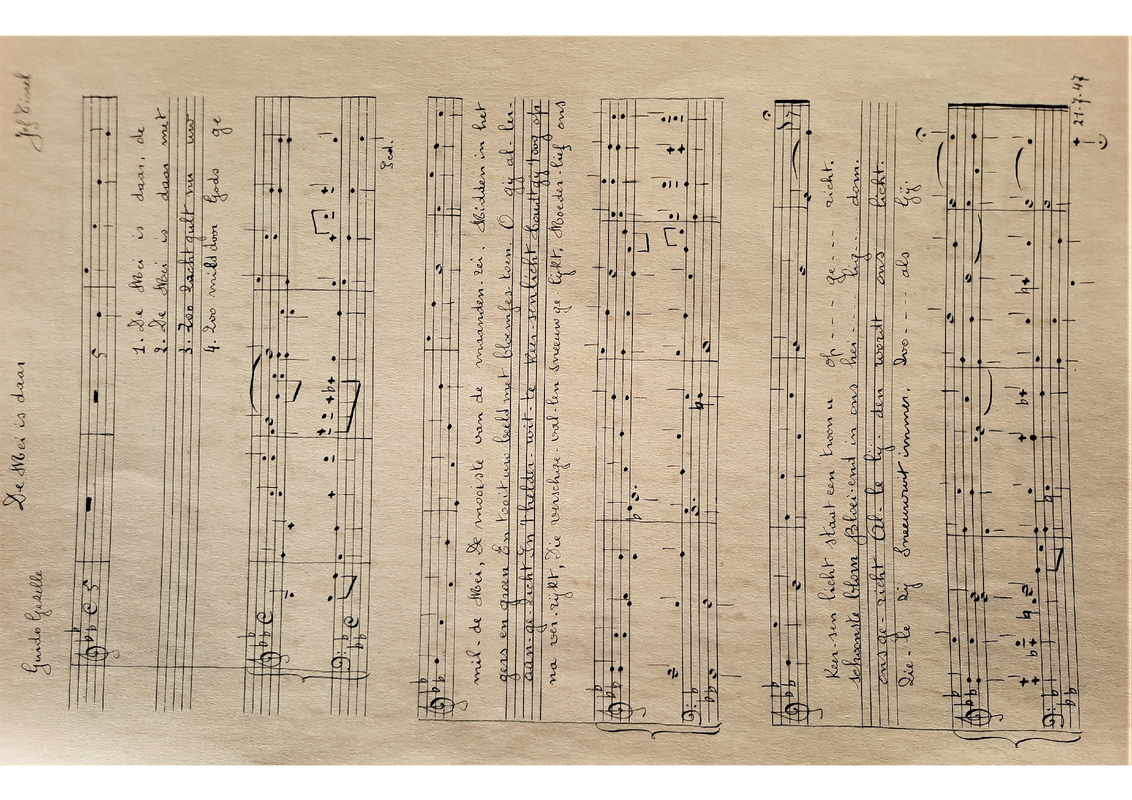 De Mei is daar
Guido Gezelle
1. De Mei is daar, de
2. De Mei is daar met
3. Zoo lacht gult nu uw
4. Zoo mild door Gods ge
Ped.
mil- de Mei, De mooiste van de maanden-rei. Midden in het
gers en groen En tooit uw beeld met bloemfestoen. O gij al- ler-
aan-ge-zicht In 't helder-wit-te keer-sen licht houdt gij toog op
na ver-rijkt, Die versche ge-val-len sneeuw ge lijkt, Moeder-lief ons
Keer-sen licht staat een troon u op --- ge --- richt.
schoonste blom Bloei-end in ons hei ---- lig --- dom.
ons ge-zicht Al- le lij- den wordt ons licht.
Die- le Zij Sneeuwwit immer, Zoo ---- als Gij.
21-7-47